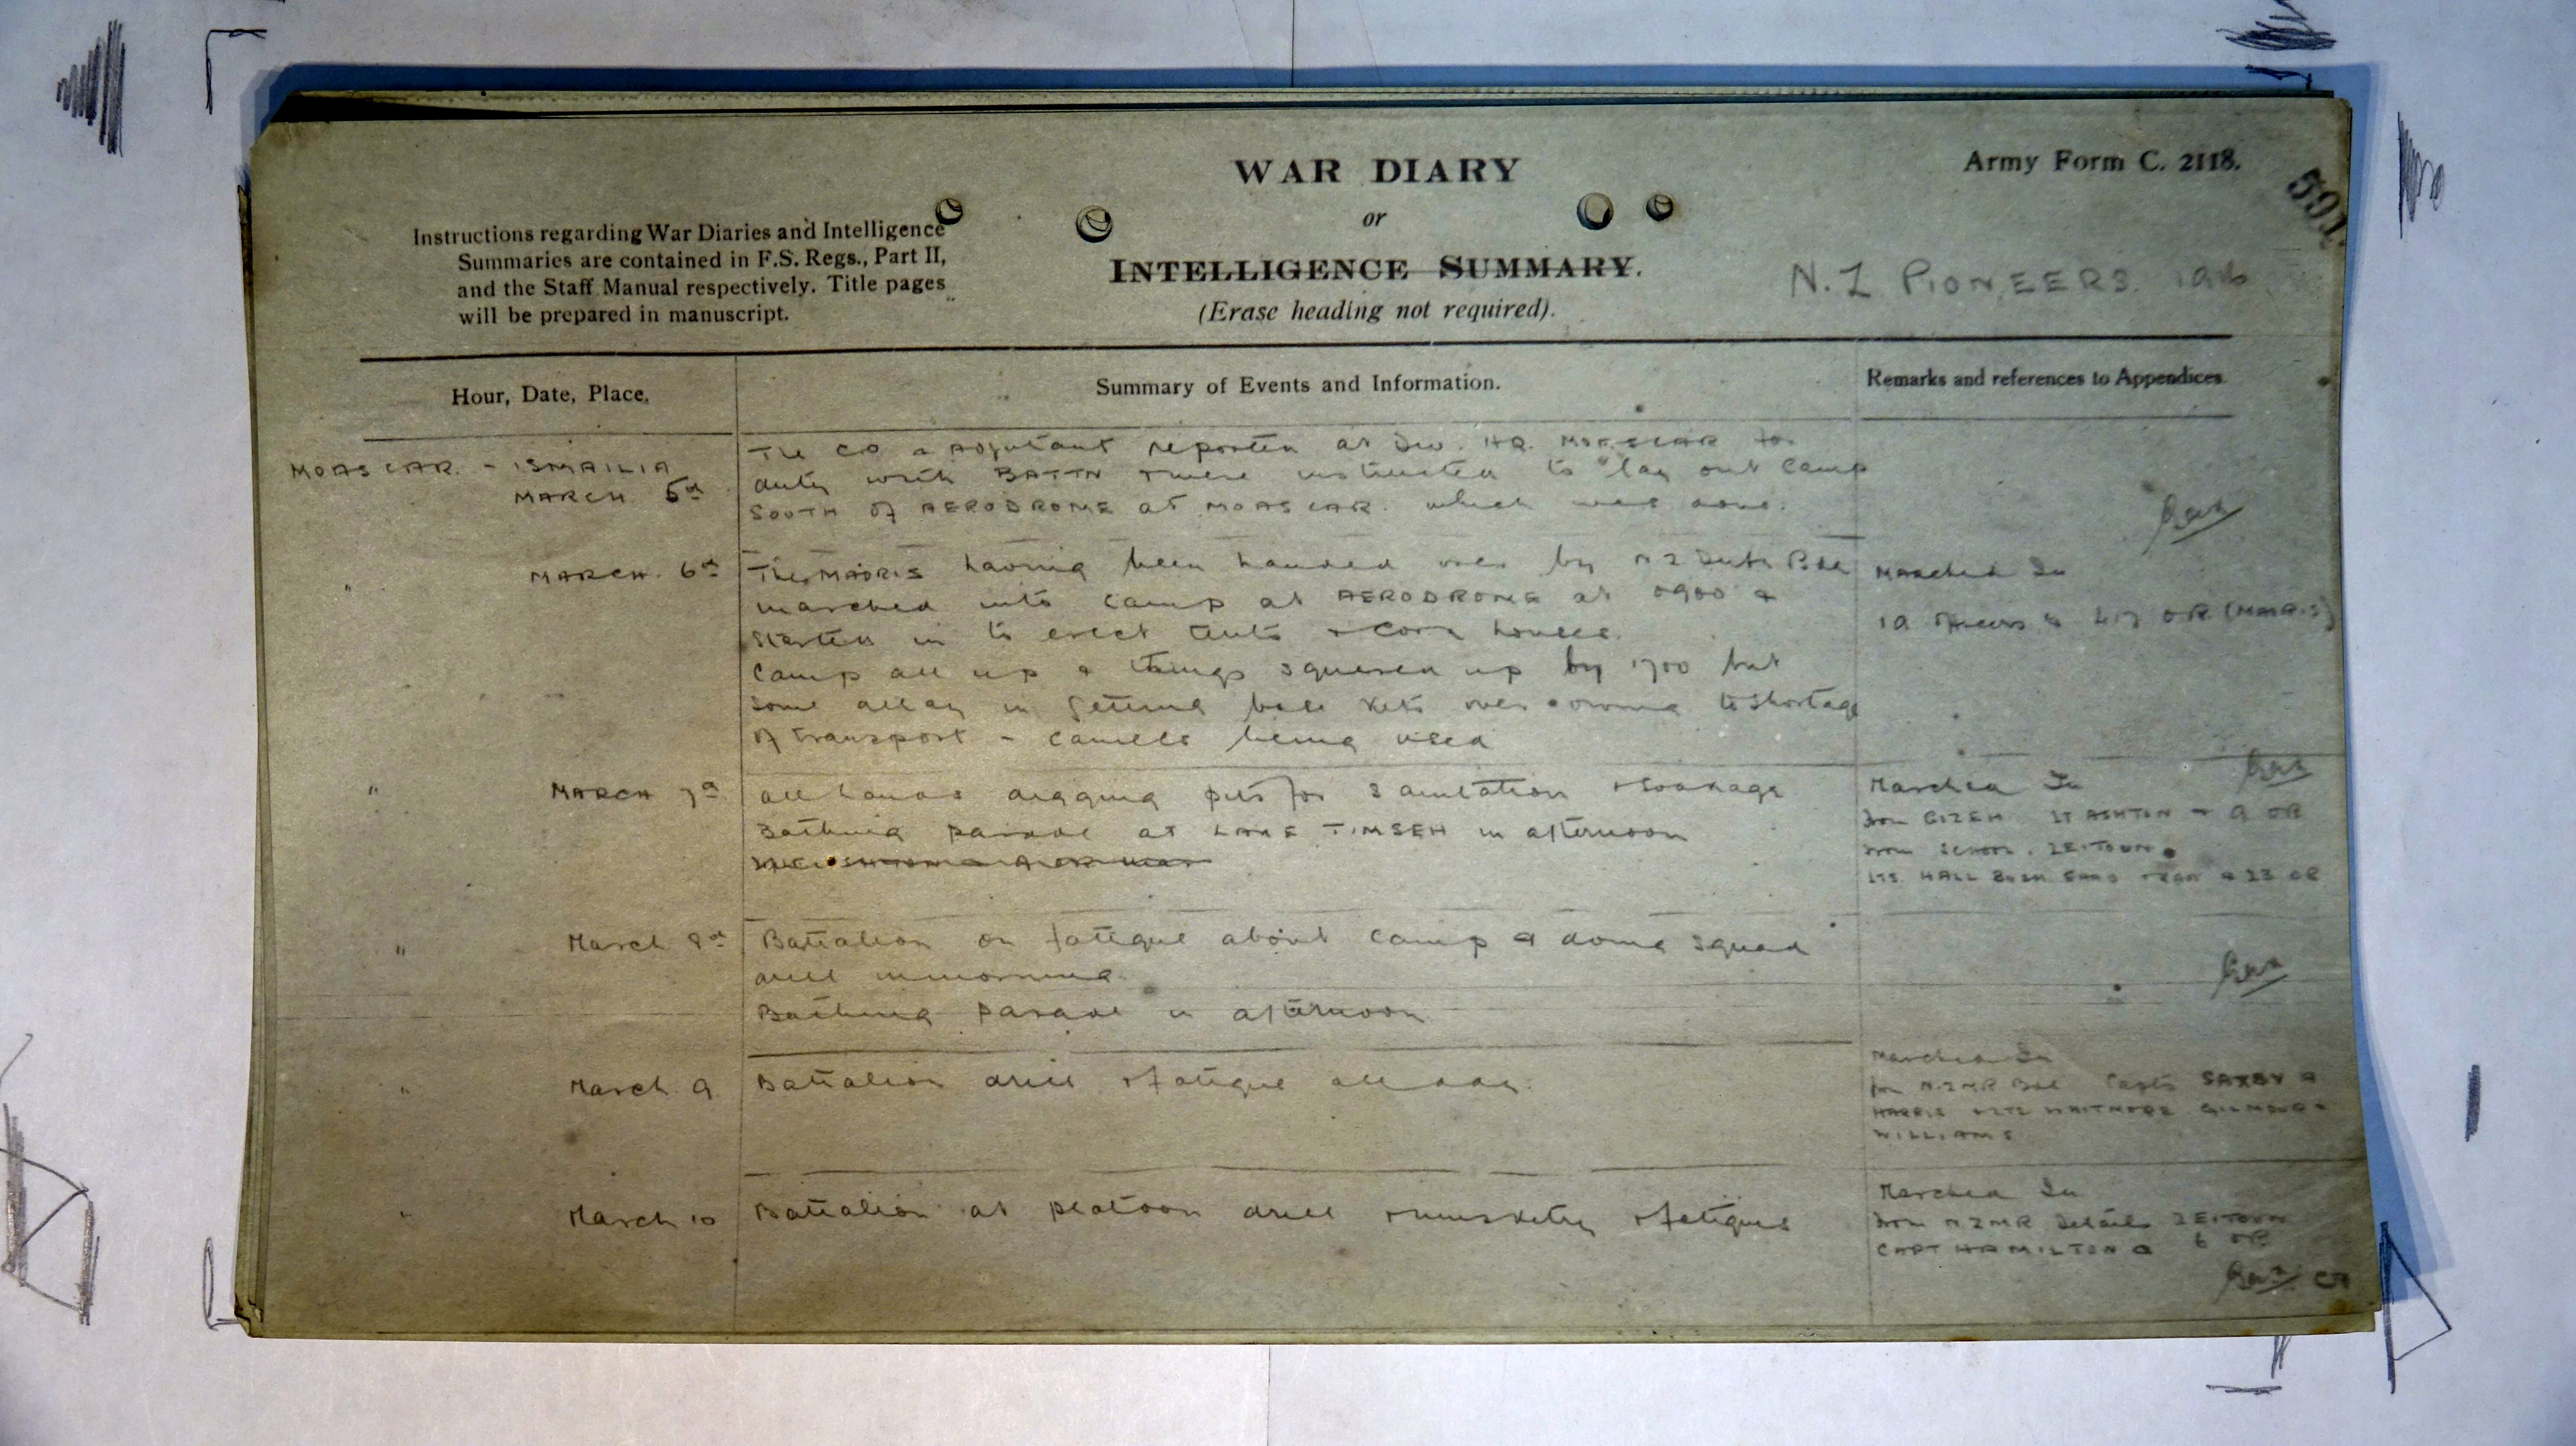 WAR DIARY
or
INTELLIGENCE SUMMARY.
(Erase heading not required).
Army Form C. 2118.
591
Instructions regarding War Diaries and Intelligence
Summaries are contained in F.S. Regs., Part II,
and the Staff Manual respectively. Title pages
will be prepared in manuscript.
N.Z PIONEERS. 1916
Hour, Date, Place.
Summary of Events and Information.
Remarks and references to Appendices.
MOASCAR. - ISMAILIA
MARCH 5th
The CO & Adjutant reported at Div. HQ. MOASCAR for
duty with BATTN & were instructed to lay out camp
SOUTH of AERODROME at MOASCAR. which was done.
" MARCH. 6th
The MAORIS having been handed over by NZ Inf Bde
marched into camp at AERODROME at 0900 &
started in to erect tents & cook houses.
Camp all up & things squared up by 1700 but
some delay in getting base kits over owing to shortage
of transport - camels being used
Marched In
19 Officers & OR (MAORIS)
" MARCH 7th
all hands digging pits for sanitation & soakage
Bathing parade at LAKE TIMSEH in afternoon
Marched In
from GIZEH LT ASHTON & 9 OR
from SCHOOL. ZEITOUN.
LTS. HALL & 23 OR
" March 8th
Battalion on fatigue about camp & doing squad
drill in morning.
Bathing parade in afternoon
" March 9
Battalion drill & fatigue all day.
Marched In
from NZMR Bde Capts SAXBY &
HARRIS & LTS WHITMORE GILMOUR &
WILLIAMS
" March 10
Battalion at platoon drill & musketry & fatigues
Marched In
from NZMR Details ZEITOUN
CAPT HAMILTON & 6 OR